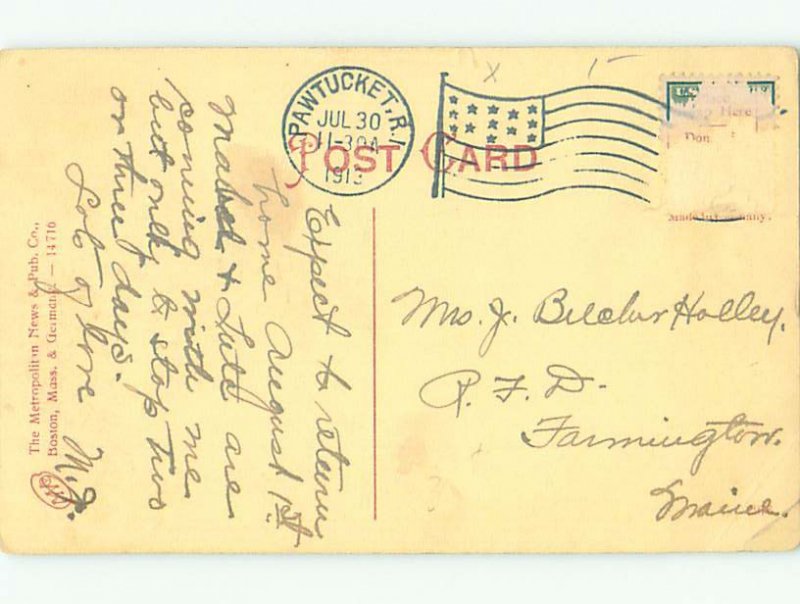 PAWTUCKET, R.I.
JUL 30
11-30A
1913
POST CARD
Here
Don
Made in Germany.
Expect to return
home August 1st
Mabel & Lute are
coming with me
but only to stop two
or three days.
Lots of love M.J.
Mrs. J. Belcher Holley,
R. F. D.
Farmington,
Maine.
The Metropolitan News & Pub. Co.,
Boston, Mass. & Germany — 14716